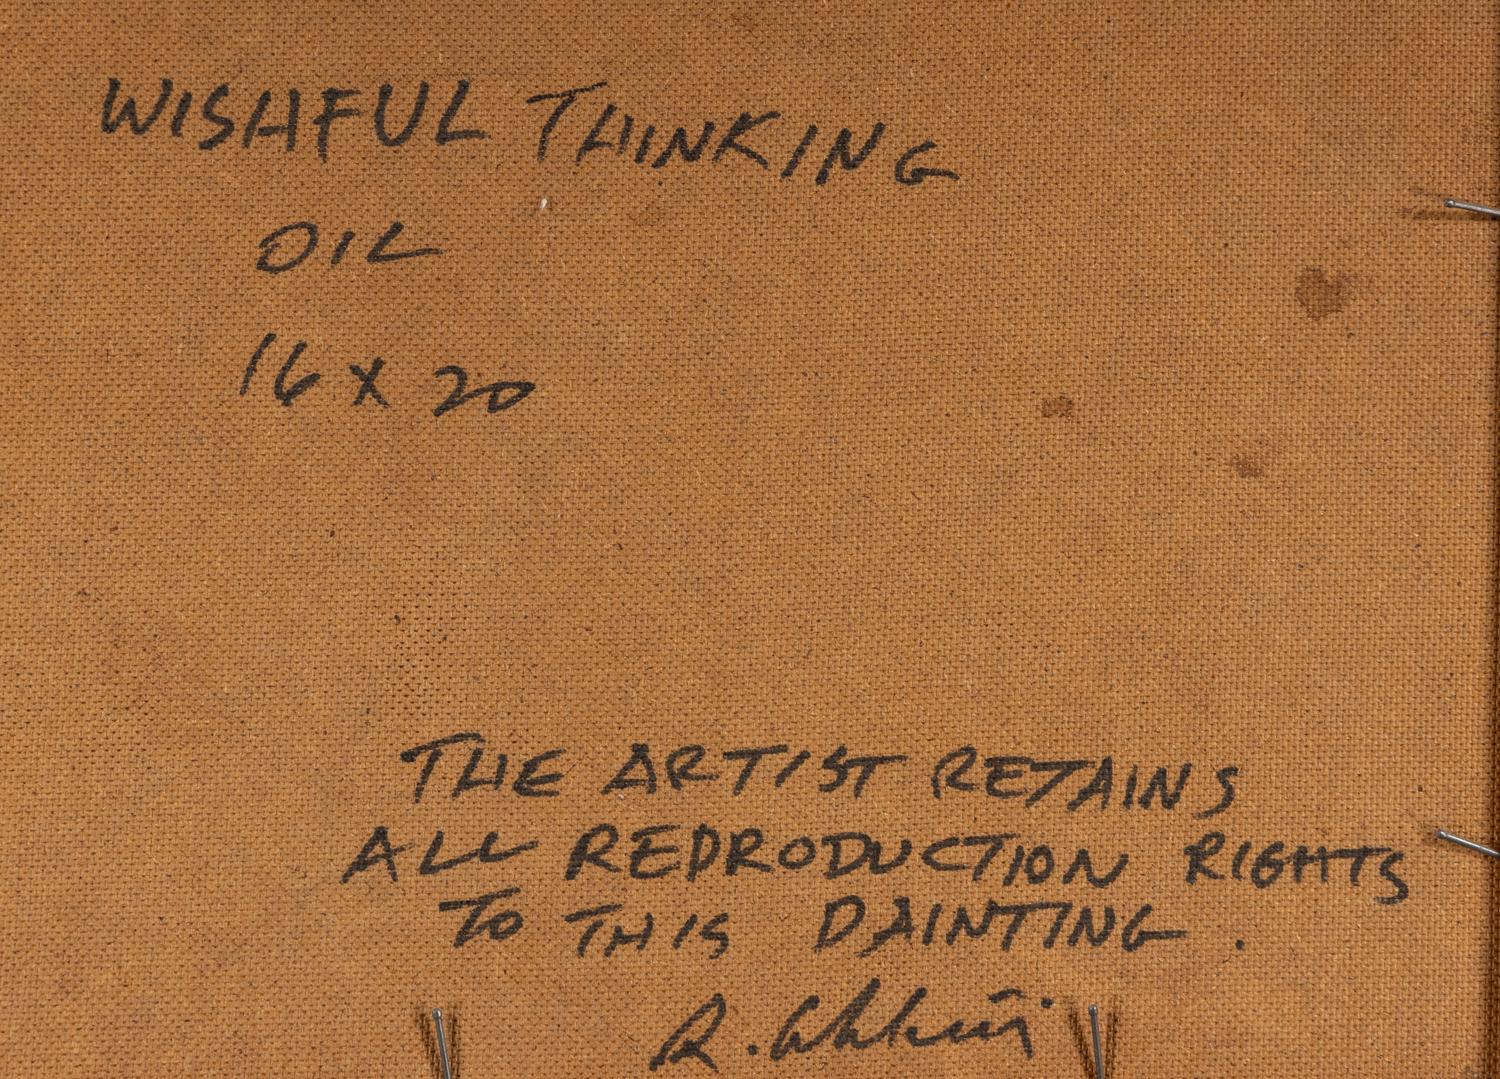 WISHFUL THINKING
OIL
16 X 20
THE ARTIST RETAINS
ALL REPRODUCTION RIGHTS
TO THIS PAINTING.
R.